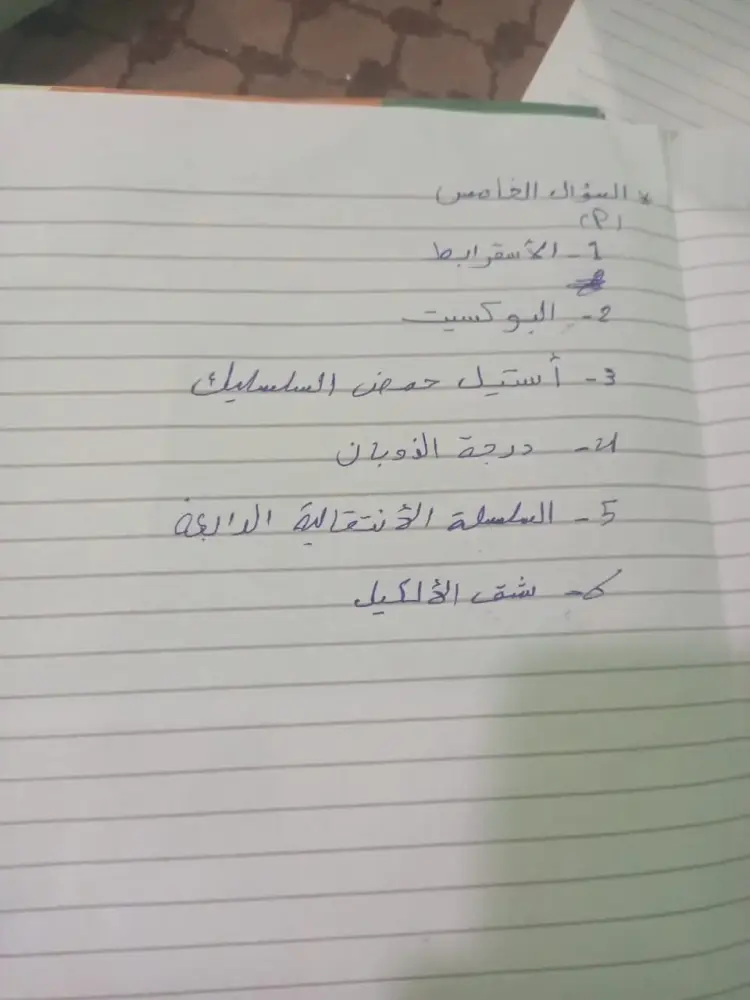 * السؤال الخامس
(P)
1- الأسقرابط
2- البوكسيت
3- أستيل حمض السلسليك
4- درجة الذوبان
5- السلسلة الأنتقالية الرابعة
6- شق الألكيل